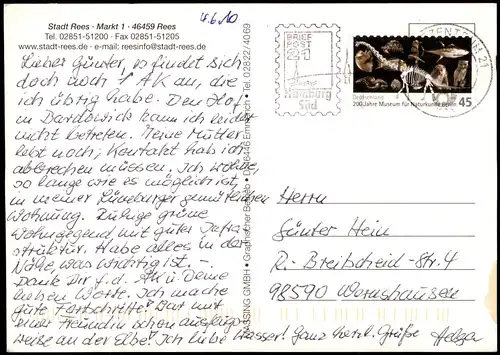 Stadt Rees · Markt 1 · 46459 Rees
Tel. 02851-51200 · Fax 02851-51205
www.stadt-rees.de · e-mail: reesinfo@stadt-rees.de
4.6.10
Lieber Günter, es findet sich
doch noch 1 AK an, die
ich übrig habe. Den Hof
in Bardowick kann ich leider
nicht betreten. Meine Mutter
lebt noch; Kontakt hab ich
abbrechen müssen. Ich wohne,
so lange wie es möglich ist,
in meiner Lüneburger gemütlichen
Wohnung. Ruhige grüne
Wohngegend mit guter Infra-
struktur. Habe alles in der
Nähe, was wichtig ist. –
Dank Dir f. d. AK u. Deine
lieben Worte. Ich mache
gute Fortschritte! War mit
einer Freundin schon ausflugs-
weise an der Elbe! Ich liebe Wasser! Ganz herzl. Grüße Helga
LASSING GMBH · Graphischer Betrieb · D-46446 Emmerich · Tel. 02822/4069
BRIEF
POST
21
Hamburg
Süd
BRIEFZENTRUM 21
Deutschland
200 Jahre Museum für Naturkunde Berlin
45
Herrn
Günter Hein
R.-Breitscheid-Str. 4
98590 Wernshausen